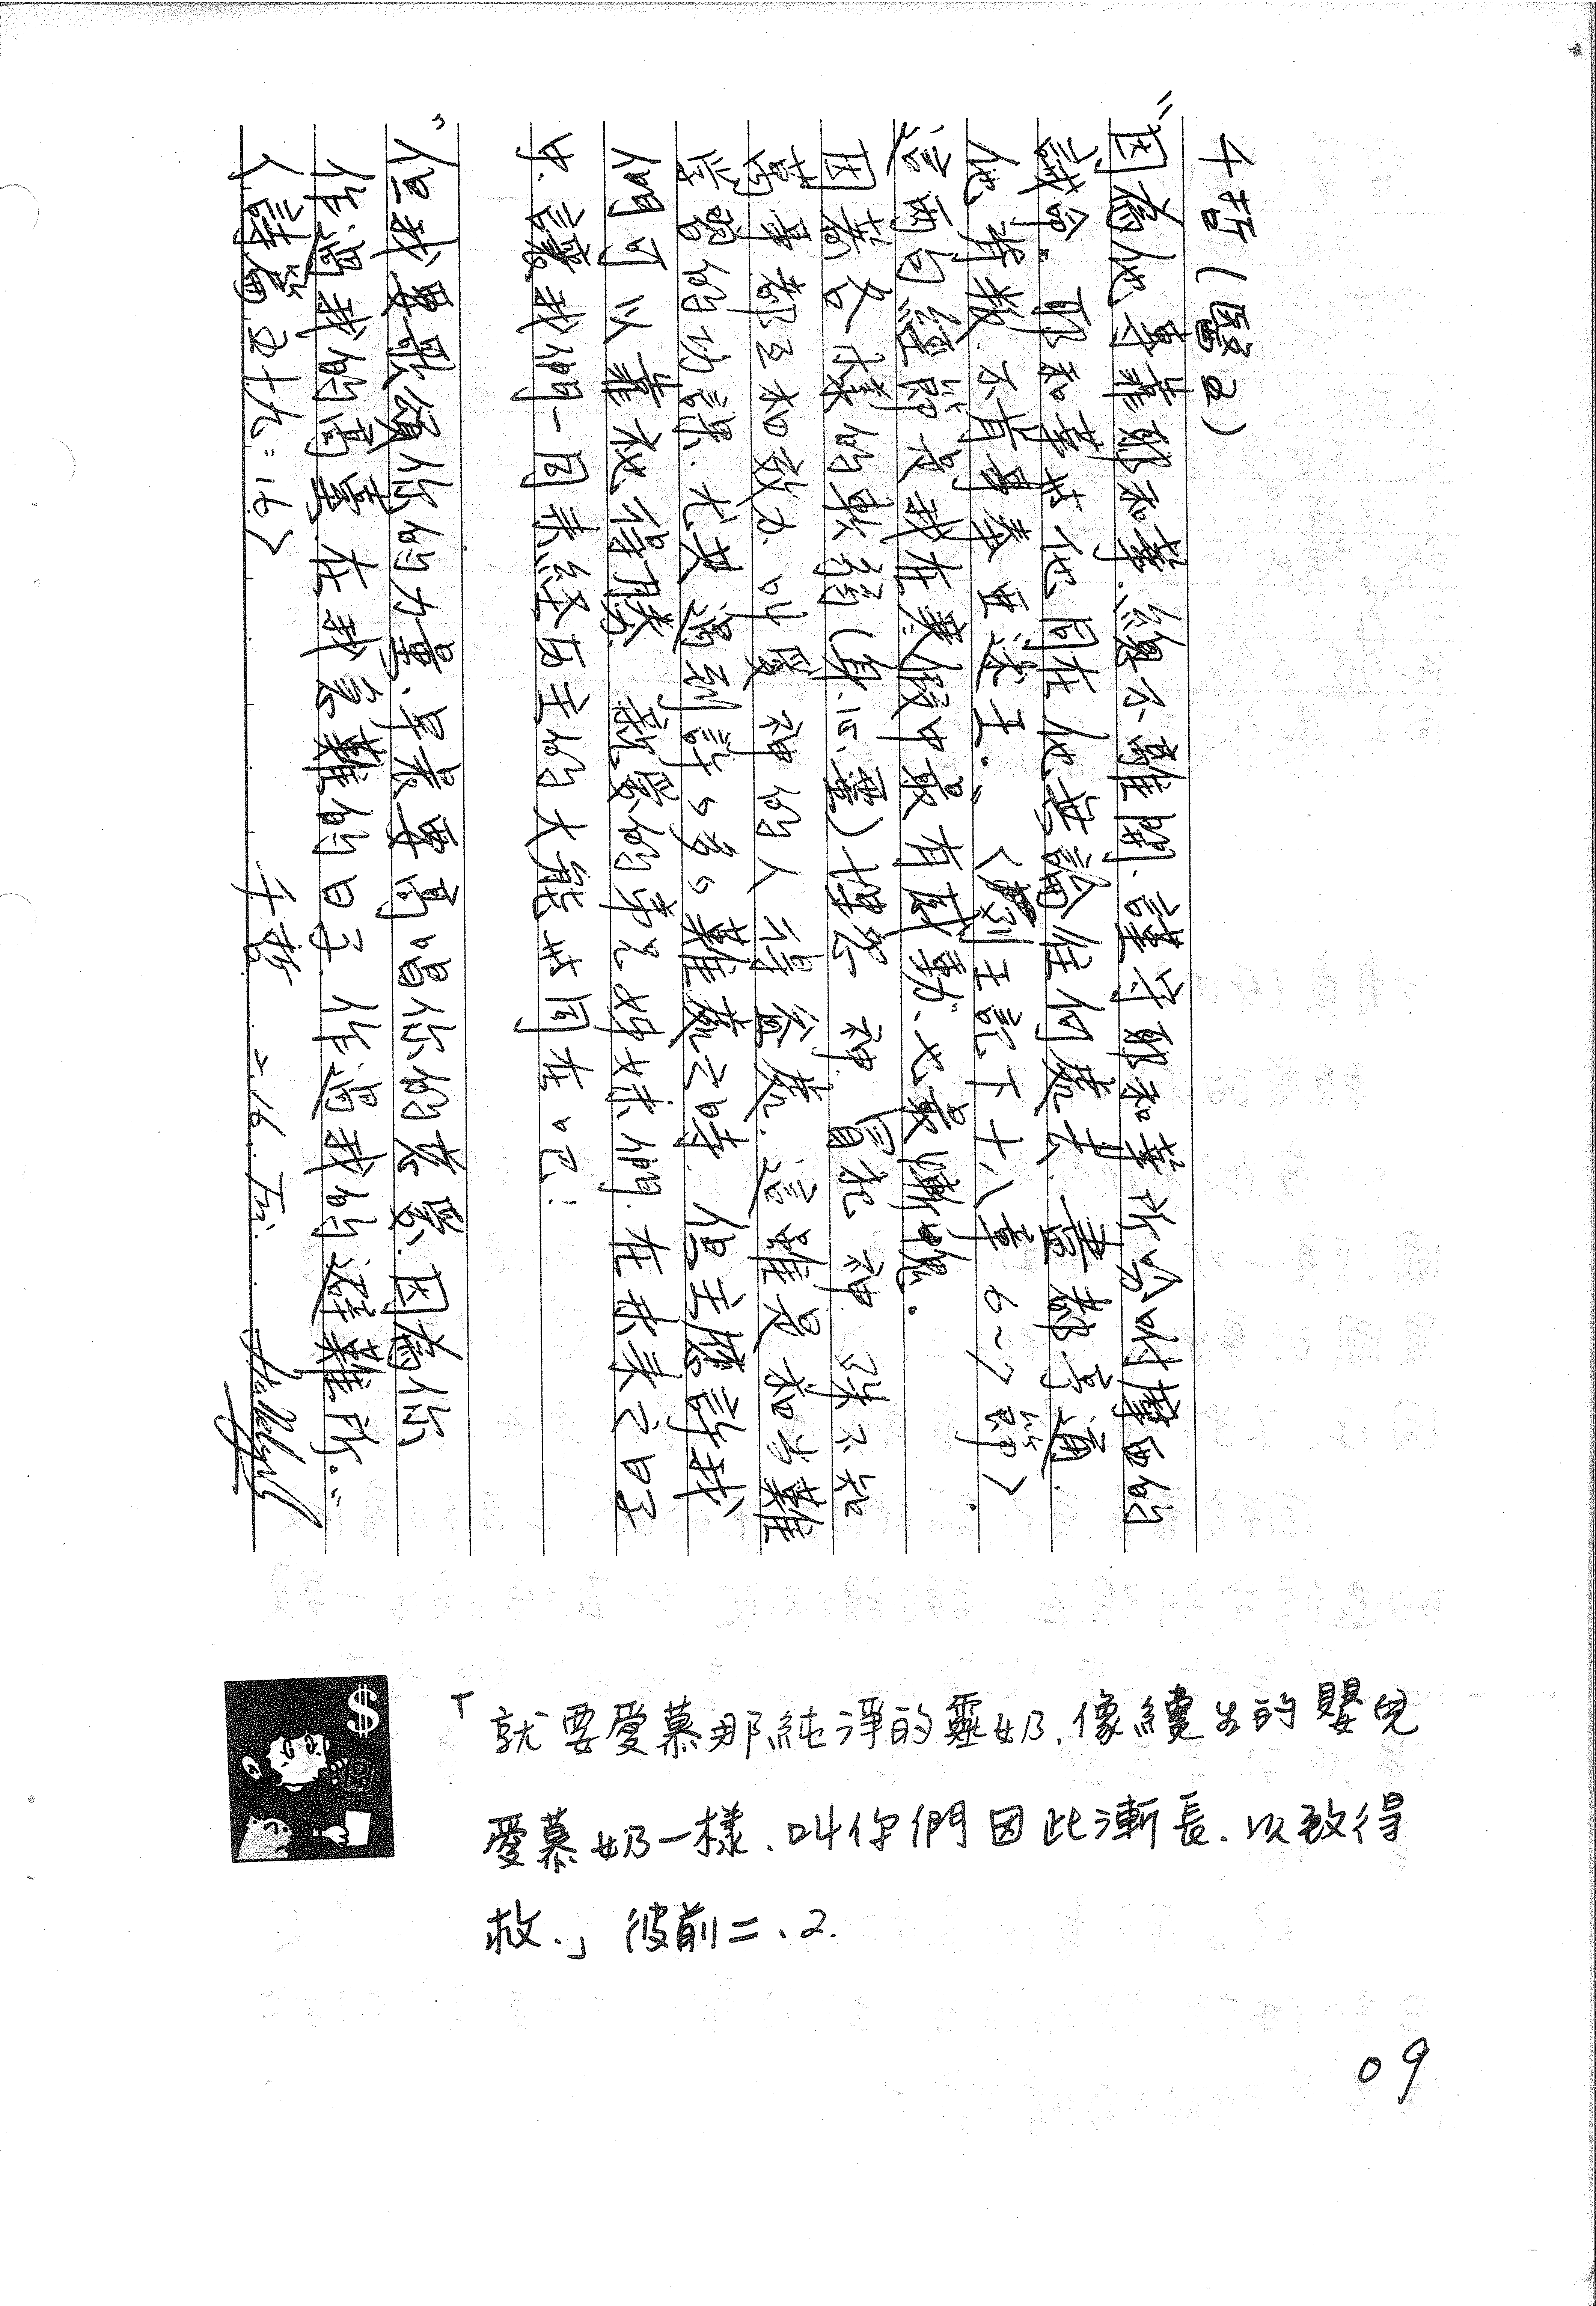 千哲(醫2)
"因為他專靠耶和華、總不離開、謹守耶和華所吩咐摩西的
誡命。耶和華與他同在、他無論往何處去、盡都亨通.
他背叛、不肯事奉亞述王."〈列王記下十八章6~7節〉.
這兩句經節是我在寒假中最有感動、也最慚愧.
因著父樣的軟弱(身.心.靈)埋怨 神、冒犯 神、殊不知
萬事都互相效力、叫愛 神的人得益處.這雖是相當難
學習的功課.尤其遇到許々多々難處之時、但主應許我
們可以靠祂得勝 親愛的弟兄姊妹們.在未來之日子
中.讓我們一同來經歷主的大能與同在吧!
"但我要歌頌你的力量、早晨要高唱你的慈愛.因為你
作過我的高臺.在我急難的日子.作過我的避難所."
〈詩篇五十九:16〉 千哲 2.16. Fri.
「就要愛慕那純淨的靈奶.像纔生的嬰兒
愛慕奶一樣.叫你們因此漸長.以致得
救.」彼前二、2.
$
09